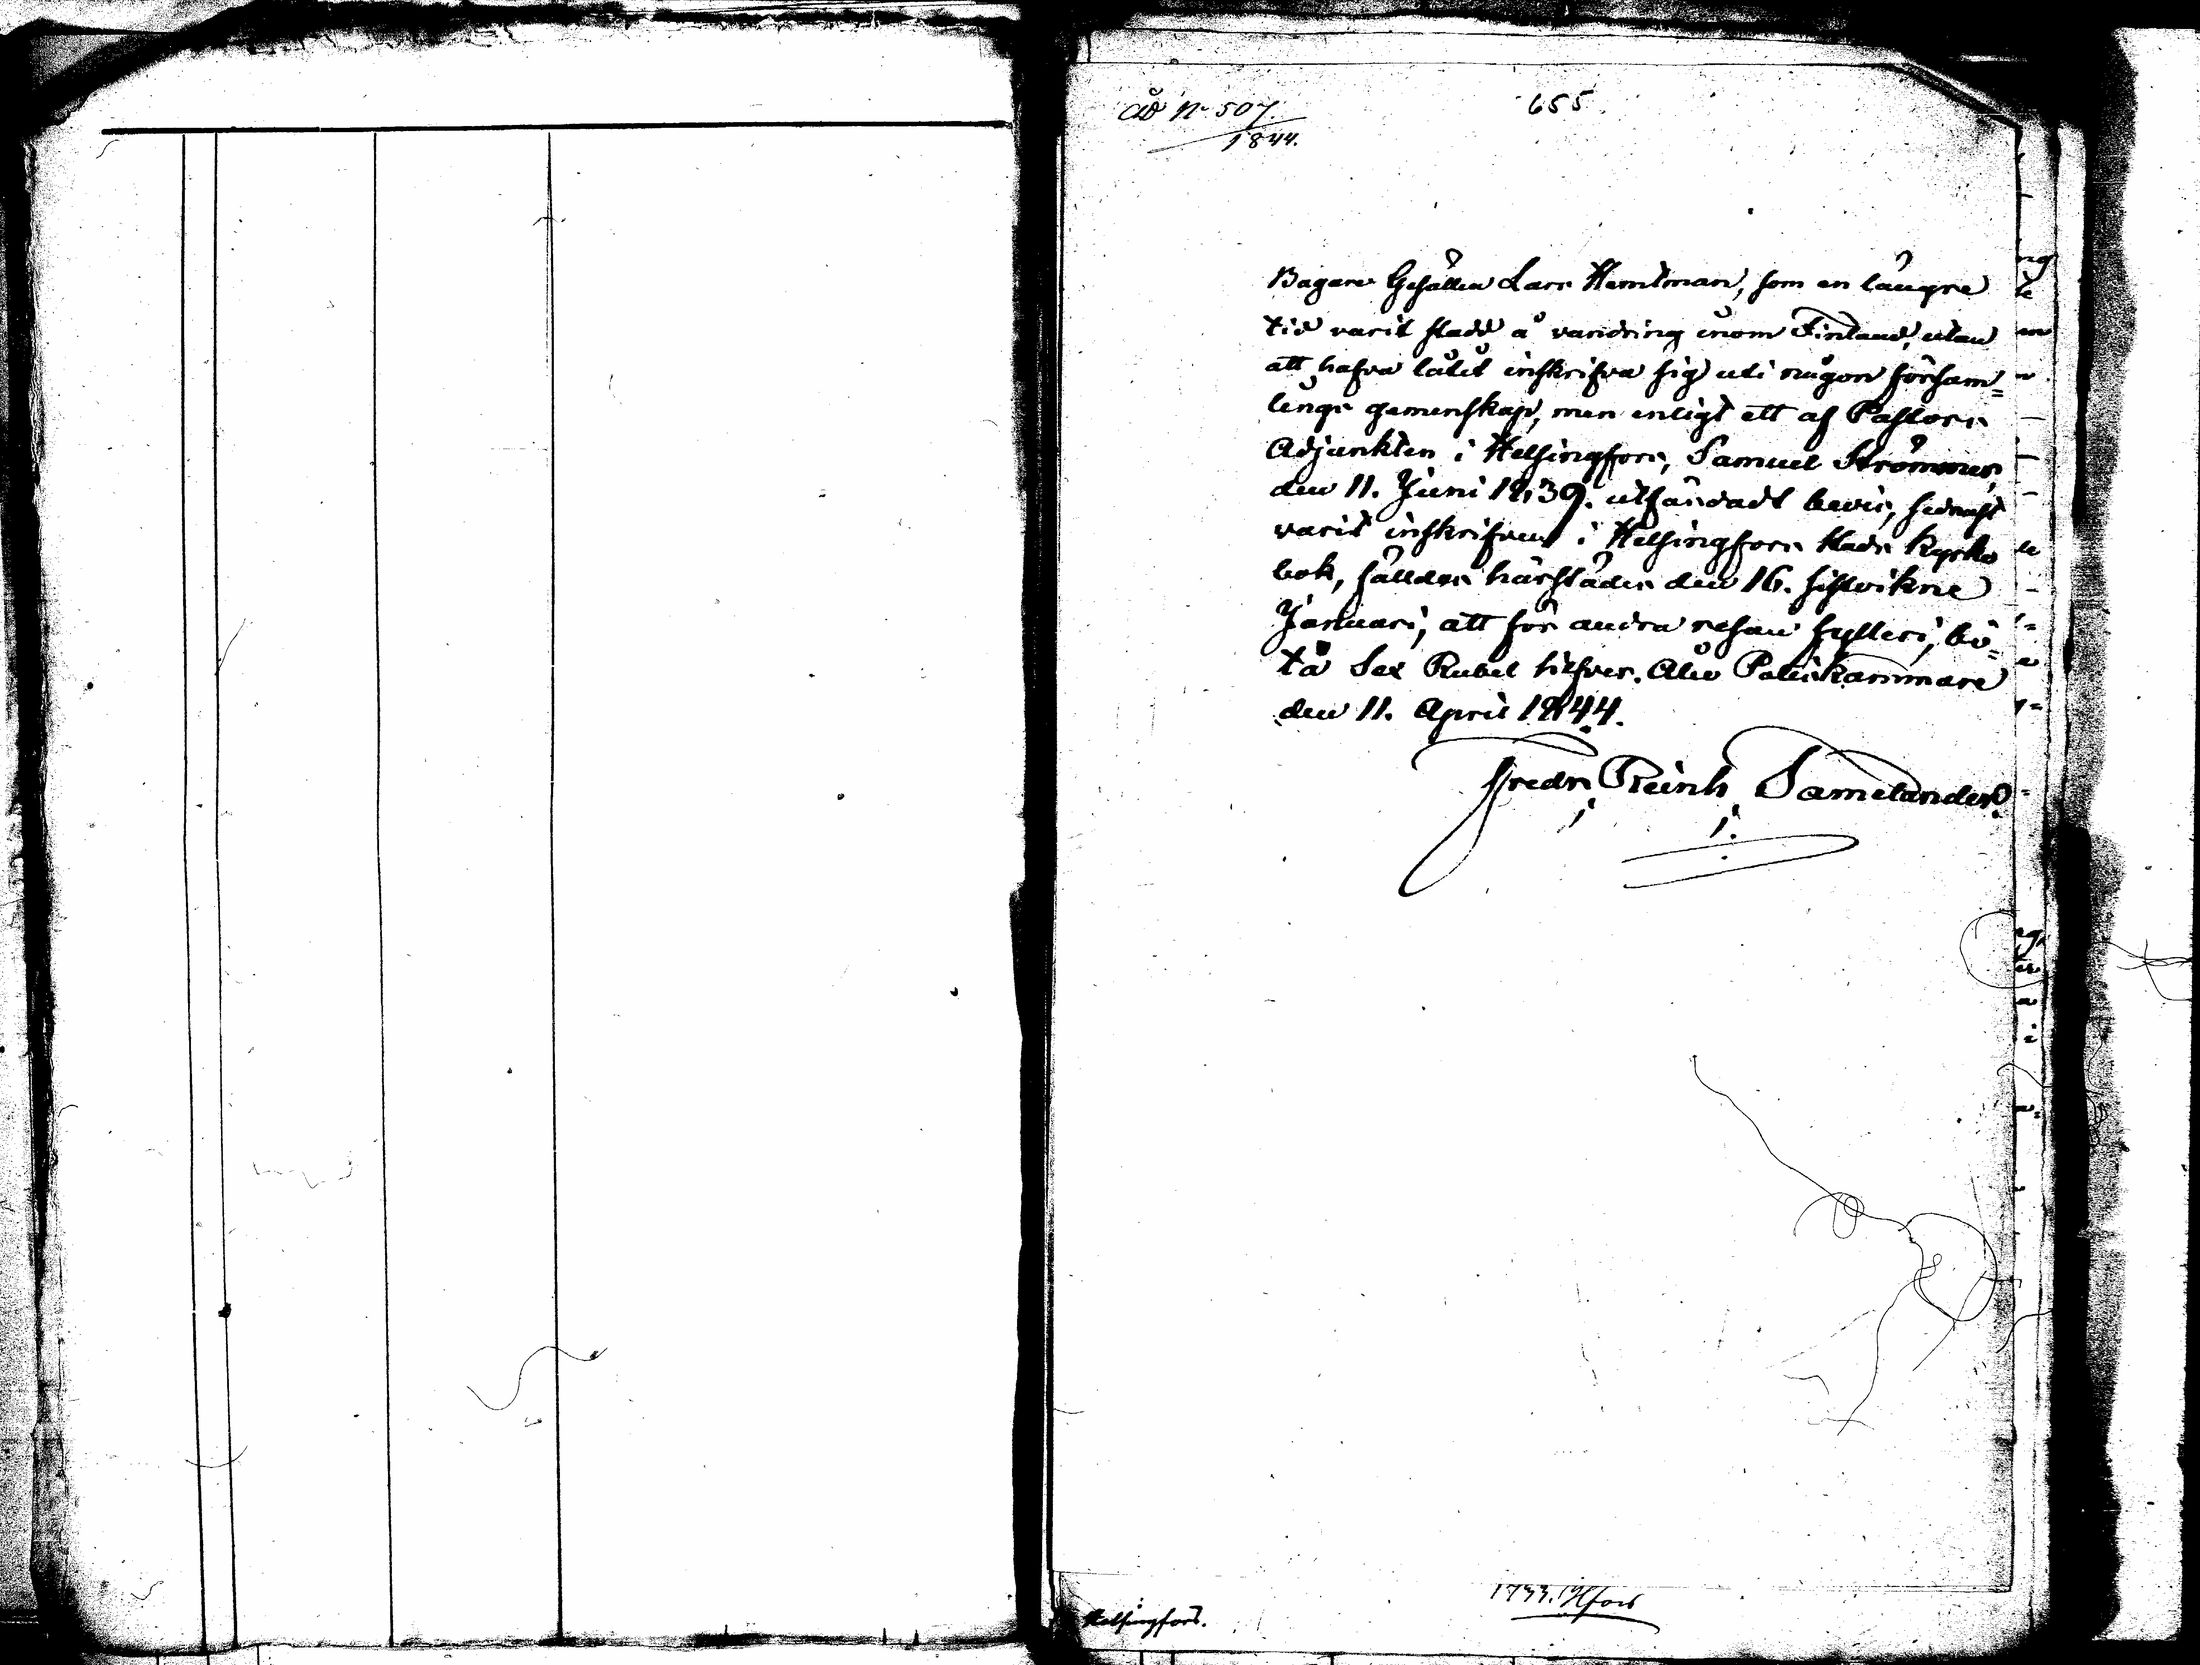 AD No 507.
1844.
655
Bagare Gesällen Lars Hemtman, som en längre
tid varit stadd å vandring inom Finland, utan
att hafva låtit inskrifva sig uti någon försam=
lings gemenskap, men enligt ett af Pastors
Adjunkten i Helsingfors, Samuel Strömmer,
den 11. Juni 1839. utfärdadt bevis, sednast
varit inskrifven i Helsingfors Stads Kyrko
bok, fälldes härstädes den 16. sistvikne
Januari, att för andra resan fylleri, bö=
ta Sex Rubel silfver. Åbo Poliskammare
den 11. April 1844.
Fredr. Reinh. Samelander.
Helsingfors.
1733. Hfors